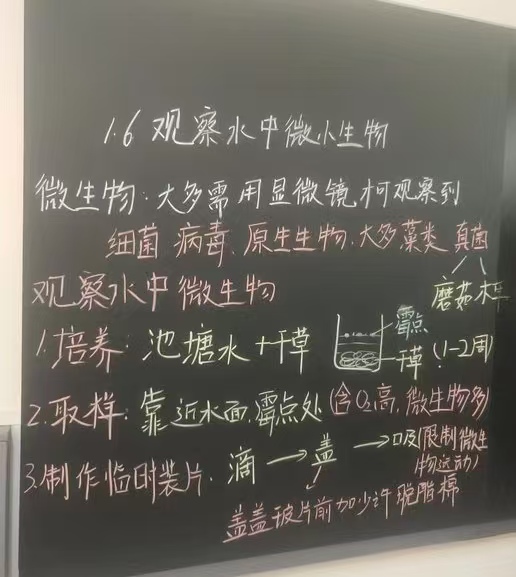 1.6 观察水中微小生物
微生物:大多需用显微镜才可观察到
细菌、病毒、原生生物、大多藻类、真菌
蘑菇 木耳
观察水中微生物
1.培养:池塘水+干草
霉点
干草 (1-2周)
2.取样:靠近水面、霉点处(含O₂高,微生物多)
3.制作临时装片:滴→盖→吸(限制微生
物运动)
盖盖玻片前加少许脱脂棉